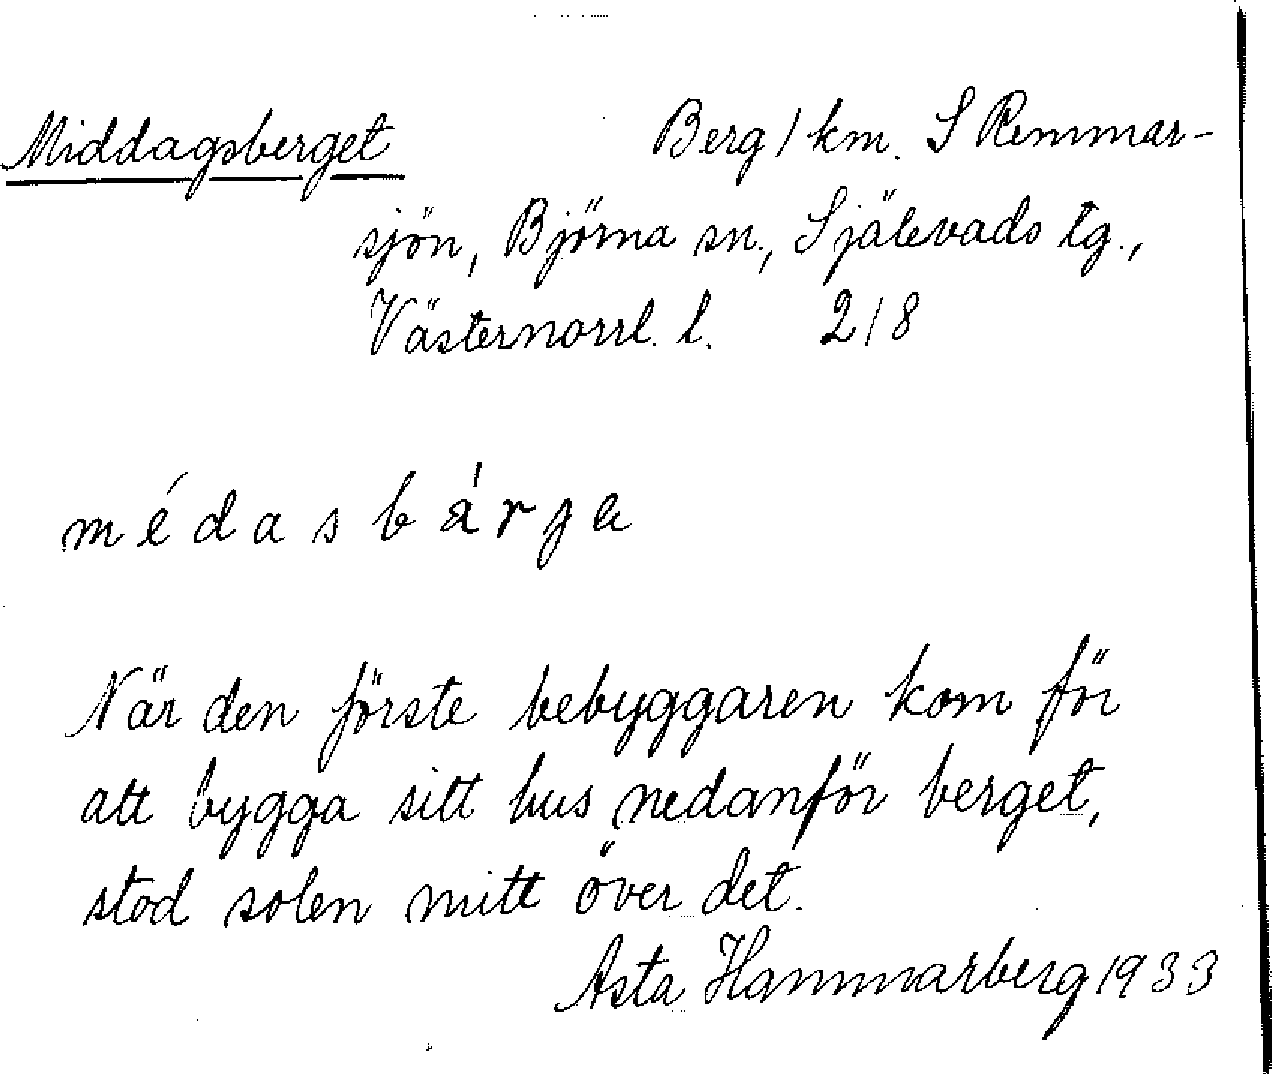 Middagsberget Berg 1 km. S Remmar-
sjön, Björna sn., Själevads tg.,
Västernorrl. l. 218
médasbárga
När den förste bebyggaren kom för
att bygga sitt hus nedanför berget,
stod solen mitt över det.
Asta Hammarberg 1933